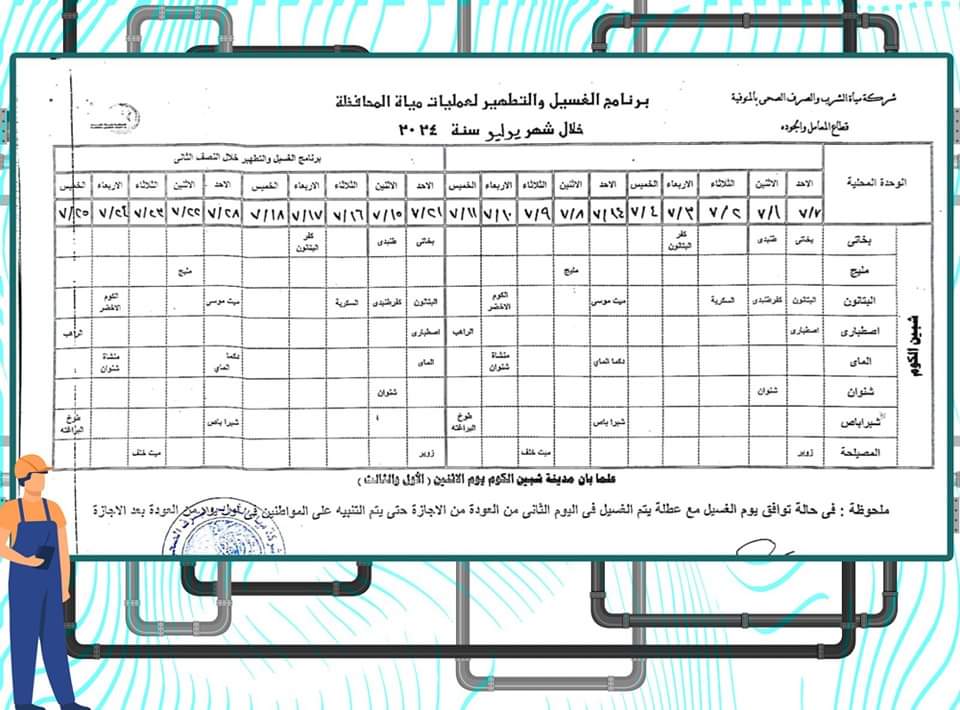 شركة مياة الشرب والصرف الصحى بالمنوفية
قطاع المعامل والجوده
برنامج الغسيل والتطهير لعمليات مياة المحافظة
خلال شهر يوليو سنة ٢٠٢٤
الوحدة المحلية
برنامج الغسيل والتطهير خلال النصف الثانى
الاحد الاثنين الثلاثاء الاربعاء الخميس الاحد الاثنين الثلاثاء الاربعاء الخميس الاحد الاثنين الثلاثاء الاربعاء الخميس الاحد الاثنين الثلاثاء الاربعاء الخميس
٧/٧ ٧/١ ٧/٢ ٧/٣ ٧/٤ ٧/١٤ ٧/٨ ٧/٩ ٧/١٠ ٧/١١ ٧/٢١ ٧/١٥ ٧/١٦ ٧/١٧ ٧/١٨ ٧/٢٨ ٧/٢٢ ٧/٢٣ ٧/٢٤ ٧/٢٥
شبين الكوم
بخاتى بخاتى طنبدى كفر البتانون بخاتى طنبدى كفر البتانون
مليج مليج مليج
البتانون البتانون كفرطنبدى السكرية ميت موسى الكوم الاخضر البتانون كفرطنبدى السكرية ميت موسى الكوم الاخضر
اصطبارى اصطبارى الراهب اصطبارى الراهب
الماى دكما الماي منشاة شنوان الماى دكما الماي منشاة شنوان
شنوان شنوان شنوان
شبراباص شبرا باص طوخ البراغته شبرا باص طوخ البراغته
المصيلحة زوير ميت خلف زوير ميت خلف
علما بان مدينة شبين الكوم يوم الاثنين ( الأول والثالث )
ملحوظة : فى حالة توافق يوم الغسيل مع عطلة يتم الغسيل فى اليوم الثانى من العودة من الاجازة حتى يتم التنبيه على المواطنين فى اول يوم من العودة بعد الاجازة